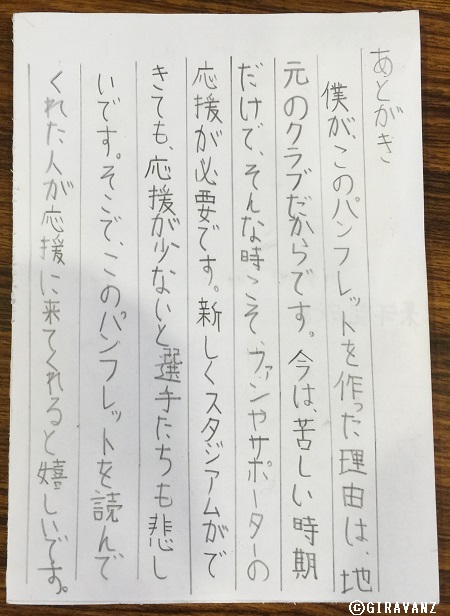 あとがき
僕が、このパンフレットを作った理由は、地
元のクラブだからです。今は、苦しい時期
だけで、そんな時こそ、ファンやサポーターの
応援が必要です。新しくスタジアムがで
きても、応援が少ないと選手たちも悲し
いです。そこで、このパンフレットを読んで
くれた人が応援に来てくれると嬉しいです。
©GIRAVANZ